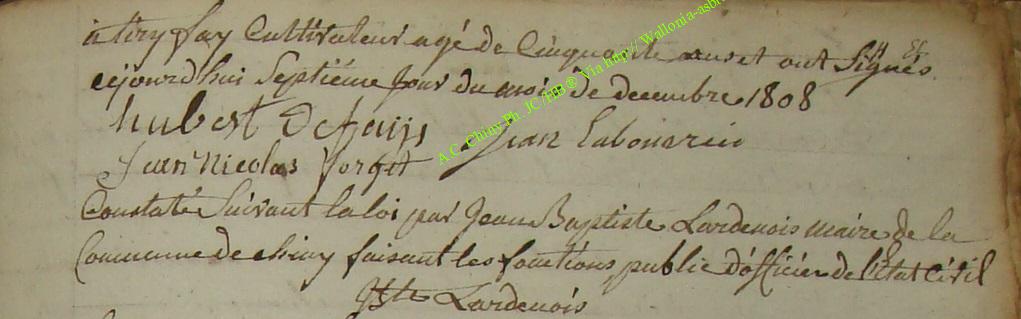 fay Cultivateur agé de Cinquante ans et ont Signés
cejourd'hui Septième Jour du mois de decembre 1808
hubert Defays Jean Labouverie
Jean Nicolas forget
Constaté Suivant la loi par Jean Baptiste Lardenois maire de la
Commune de chiny faisant les fonctions public d'officier de l'Etat Civil
Jbte Lardenois
A.C. Chiny Ph. JC/HB® Via http:// Wallonia-asb